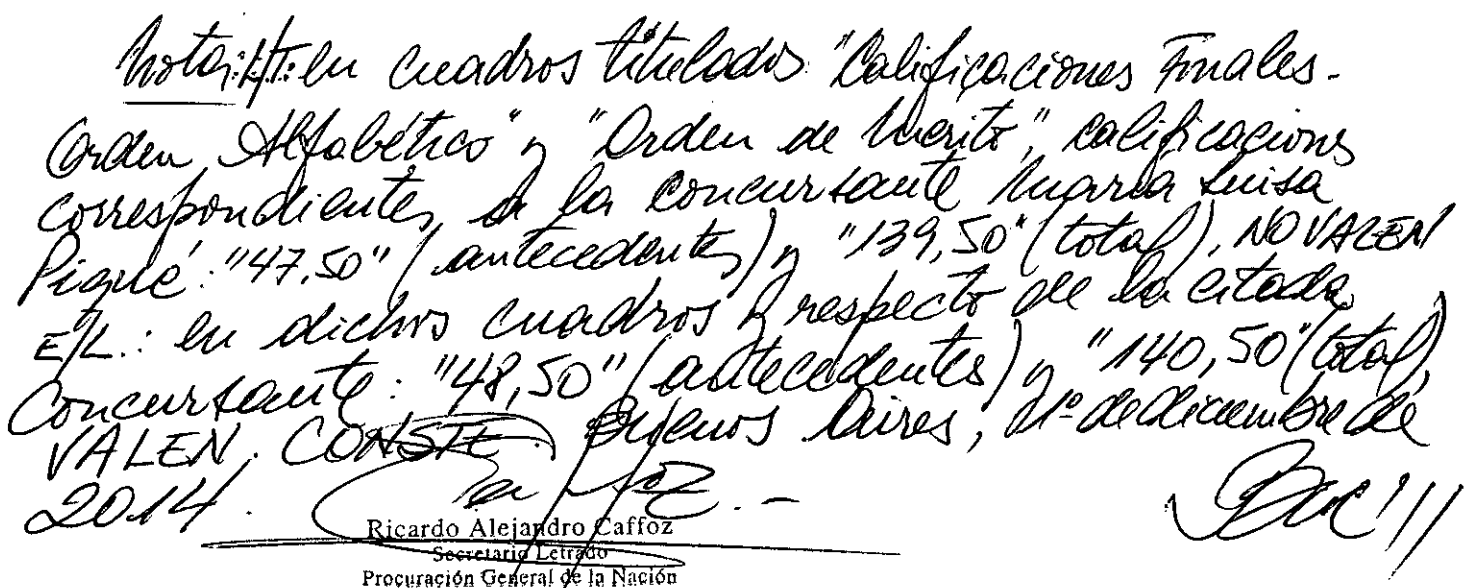 Nota: E/T: en cuadros titulados "Calificaciones Finales-
Orden Alfabético" y "Orden de Merito", calificaciones
correspondientes a la concursante María Luisa
Piqué: "47,50" (antecedentes) y "139,50" (total), NO VALEN
E/L.: en dichos cuadros y respecto de la citada
Concursante: "48,50" (antecedentes) y "140,50" (total),
VALEN. CONSTE. Buenos Aires, 1º de diciembre de
2014.
Ricardo Alejandro Caffoz
Secretario Letrado
Procuración General de la Nación